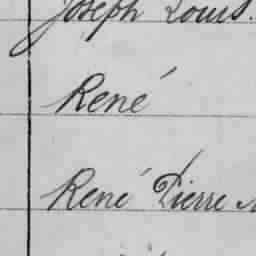 Joseph Louis.
René
René Pierre